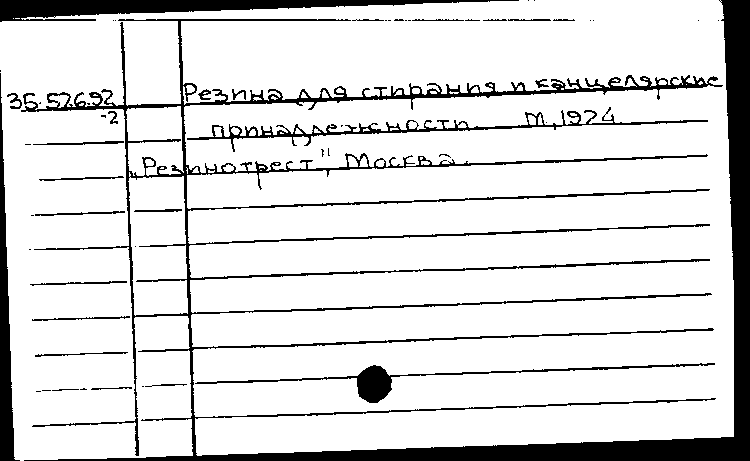 35.526.92 Резина для стирания и канцелярские
-2 принадлежности. М., 1924.
„Резинотрест", Москва.